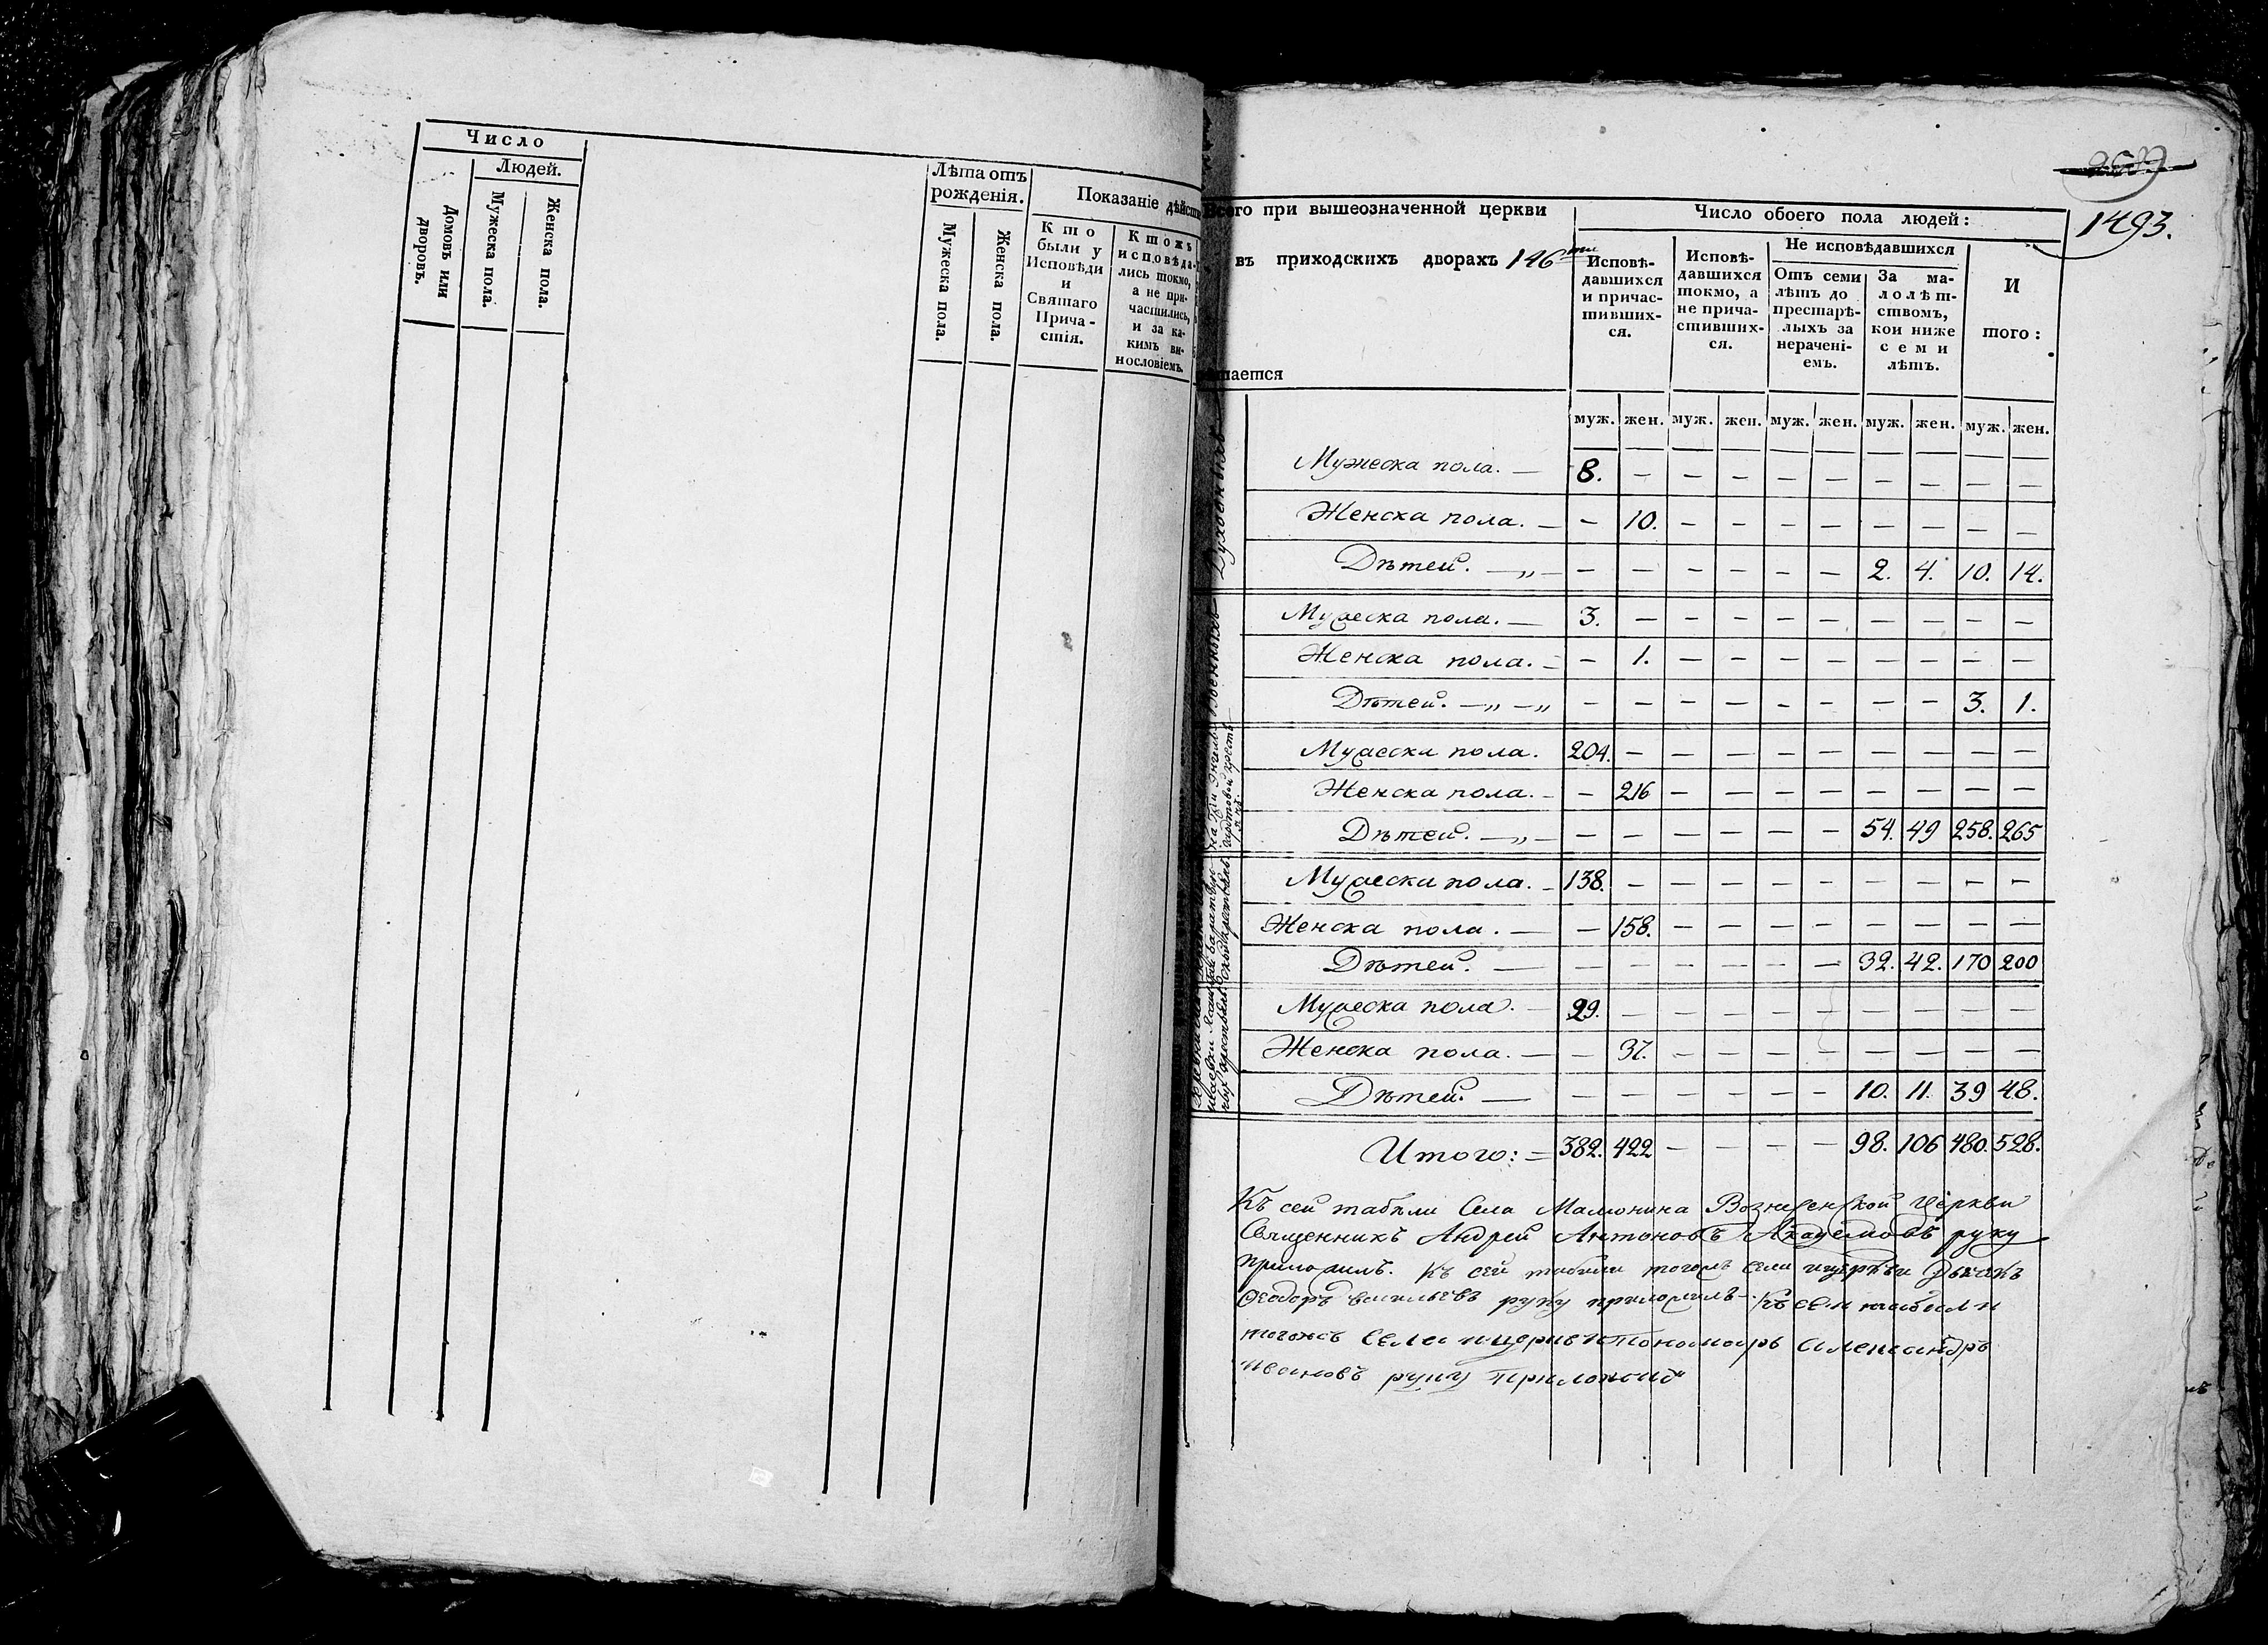 Число
Людей.
Домовъ или дворовъ.
Мужеска пола.
Женска пола.
Лѣта отъ рожденія.
Мужеска пола.
Женска пола.
Показаніе дѣйств
Кто
были у
Исповѣди
и
Святаго
Прича-
стія.
Ктожъ
исповѣда-
лись токмо,
а не при-
частились,
и за ка-
кимъ ви-
нословіемъ.
1493.
Всего при вышеозначенной церкви
въ приходскихъ дворахъ 146ти
тается
Число обоего пола людей:
Исповѣ-
давшихся
и причас-
тивших-
ся.
Исповѣ-
давшихся
токмо, а
не прича-
стивших-
ся.
Не исповѣдавшихся
Отъ семи
лѣтъ до
престарѣ-
лыхъ за
нерачені-
емъ.
За ма-
лолѣт-
ствомъ,
кои ниже
семи
лѣтъ.
И
того:
муж. жен. муж. жен. муж. жен. муж. жен. муж. жен.
Духовныхъ
Мужеска пола. — 8. — — — — — — — — —
Женска пола. — — 10. — — — — — — — —
Дѣтей. — „ — — — — — — — 2. 4. 10. 14.
Военныхъ
Мужеска пола. — 3. — — — — — — — — —
Женска пола. — — 1. — — — — — — — —
Дѣтей. — „ — „ — — — — — — — — 3. 1.
Мужеска пола. 204. — — — — — — — — —
Женска пола. — — 216 — — — — — — — —
Дѣтей. — „ — — — — — — — 54. 49 258. 265
Мужеска пола. — 138. — — — — — — — — —
Женска пола. — — 158. — — — — — — — —
Дѣтей. — — — — — — — 32. 42. 170 200
Мужеска пола. — 29. — — — — — — — — —
Женска пола. — — 37. — — — — — — — —
Дѣтей. — — — — — — — 10. 11. 39 48.
Итого: = 382. 422 — — — — 98. 106 480. 528.
Къ сей табели Села Мамонина Вознесенской Церкви
Священникъ Андрей Антоновъ руку
приложилъ. Къ сей табели тогожъ села и церкви Дьячекъ
Ѳеодоръ Васильевъ руку приложилъ — Къ сей табели
тогожъ села и церкви Пономарь Александръ
Ивановъ руку приложилъ